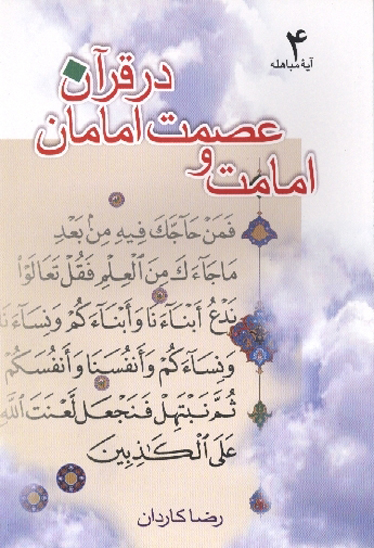 ۴
آیهٔ مباهله
امامت و
عصمت امامان
در قرآن
فَمَنْ حَآجَّكَ فِيهِ مِنۢ بَعْدِ
مَا جَآءَكَ مِنَ ٱلْعِلْمِ فَقُلْ تَعَالَوْا۟
نَدْعُ أَبْنَآءَنَا وَأَبْنَآءَكُمْ وَنِسَآءَنَا
وَنِسَآءَكُمْ وَأَنفُسَنَا وَأَنفُسَكُمْ
ثُمَّ نَبْتَهِلْ فَنَجْعَل لَّعْنَتَ ٱللَّهِ
عَلَى ٱلْكَـٰذِبِينَ
رضا کاردان